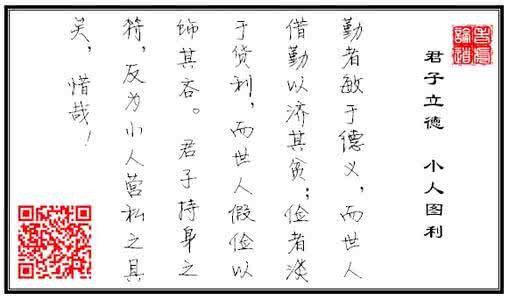 君子立德 小人图利
勤者敏于德义，而世人
借勤以济其贫；俭者淡
于货利，而世人假俭以
饰其吝。君子持身之
符，反为小人营私之具
矣，惜哉！